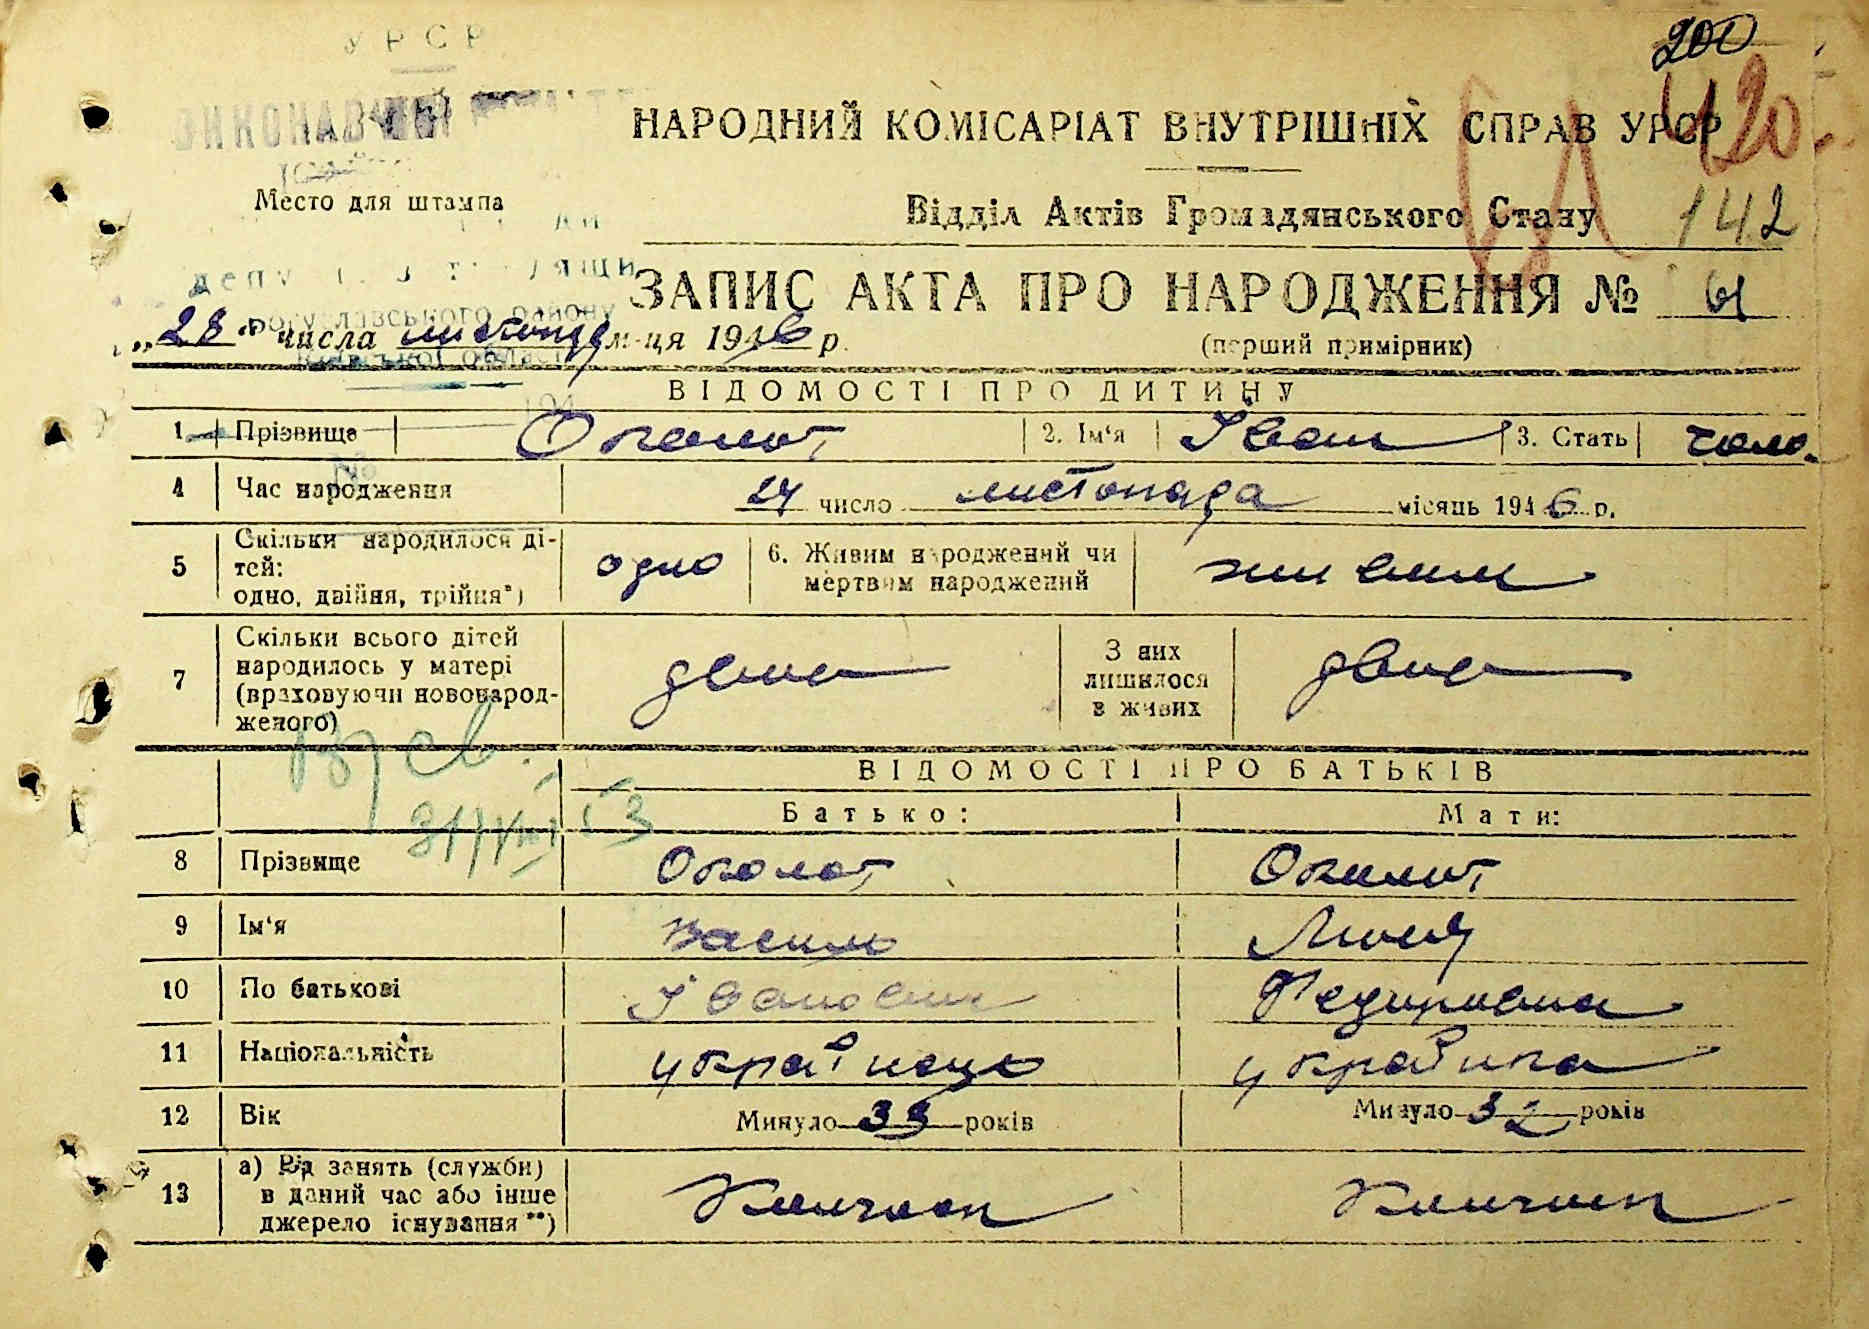 200
УРСР
ВИКОНАВЧИЙ
НАРОДНИЙ КОМІСАРІАТ ВНУТРІШНІХ СПРАВ УРСР
61 420
Место для штампа
Відділ Актів Громадянського Стану
142
ЗАПИС АКТА ПРО НАРОДЖЕННЯ № 61
Богуславського району
„28“ числа листопада м-ця 1946 р.
(перший примірник)
Київської області
ВІДОМОСТІ ПРО ДИТИНУ
1 Прізвище Околот 2. Ім'я Іван 3. Стать чоло.
4 Час народження 24 число листопада місяць 1946 р.
5 Скільки народилося дітей: одно, двійня, трійня*) одно 6. Живим народжений чи мертвим народжений живим
7 Скільки всього дітей народилось у матері (враховуючи новонародженого) двоє З них лишилося в живих двоє
ВІДОМОСТІ ПРО БАТЬКІВ
Батько: Мати:
8 Прізвище Околот Околот
9 Ім'я Василь
10 По батькові Іванович Федорівна
11 Національність українець українка
12 Вік Минуло 39 років Минуло 32 років
13 а) Рід занять (служби) в даний час або інше джерело існування **)